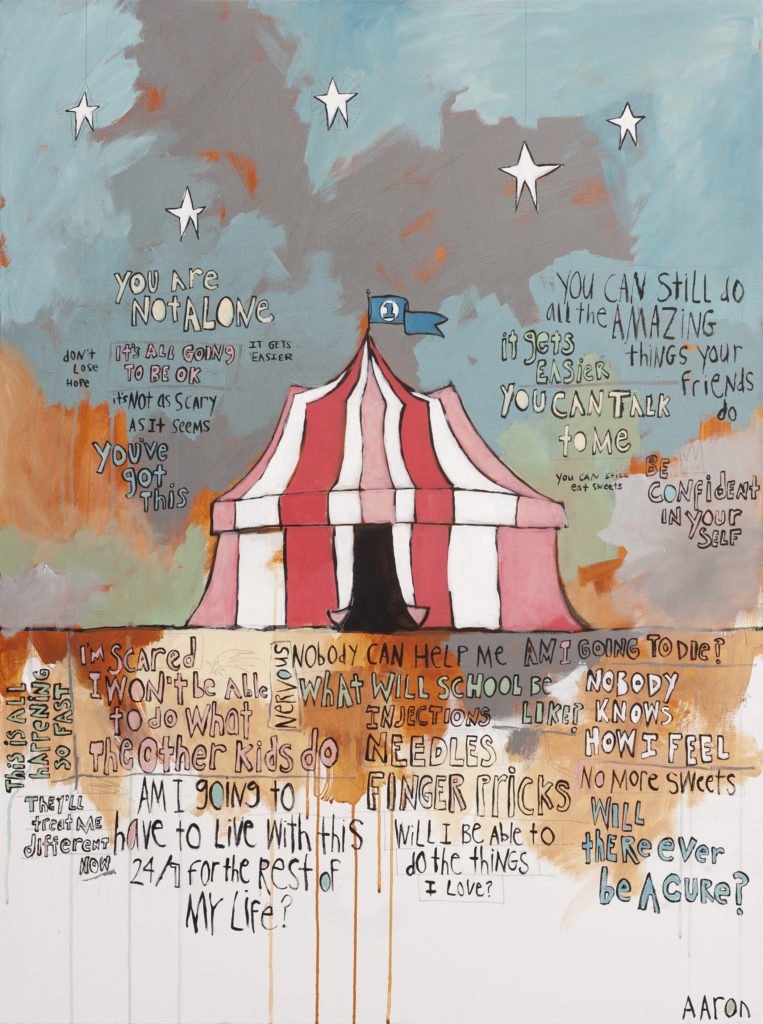 YOU ARE
NOT ALONE
DON'T
LOSE
HOPE
IT'S ALL GOING
TO BE OK
IT GETS
EASIER
it's NOT AS SCARY
AS IT SEEMS
YOU'VE
got
this
1
YOU CAN STILL do
all the AMAZING
things your
friends
do
it gets
EASIER
YOU CAN TALK
to ME
YOU CAN STILL
eat sweets
BE
CONFIDENT
IN YOUR
SELF
This is ALL
happening
SO FAST
I'm SCARED
I WON'T be Able
to do What
The Other Kids do
NERVOUS
NOBODY CAN HELP ME
AM I GOING TO DIE?
WHAT WILL SCHOOL BE
LIKE?
INJECTIONS
NEEDLES
FINGER PRICKS
NOBODY
KNOWS
HOW I FEEL
NO MORE SWEETS
THEY'LL
treat ME
different
NOW
AM I gOING to
have to Live With this
24/7 FOR the REST of
MY Life?
WILL I BE ABLE to
do the things
I LOVE?
WILL
thERE ever
be A CURE?
AARON